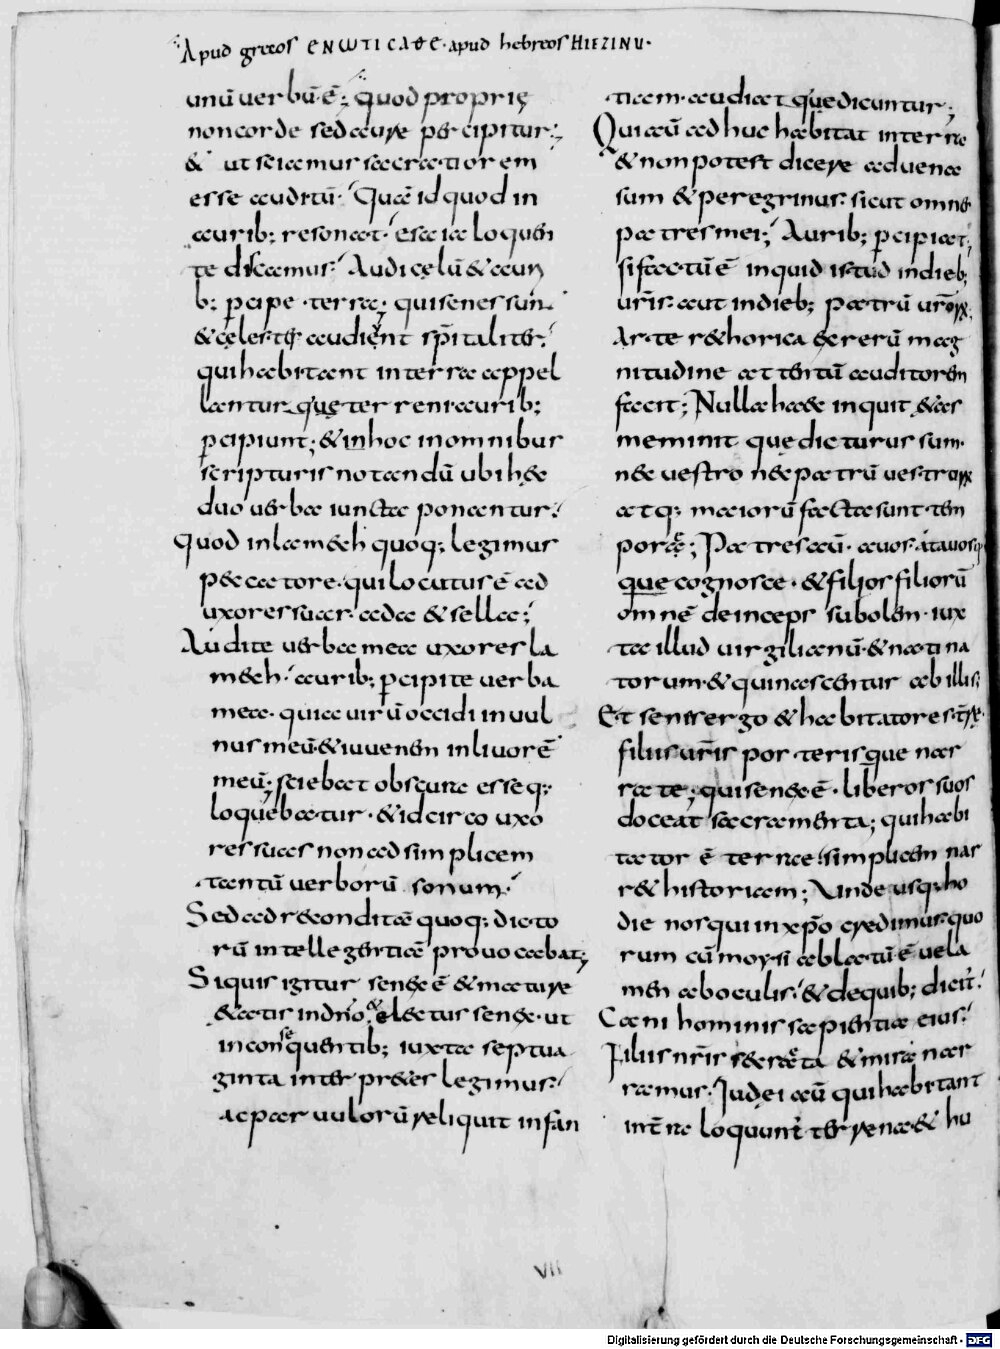 Apud grecos ENωTICAΘE · apud hebreos HIEZINU ·
unū uerbū· ē; quod proprię
non corde sed aure percipitur;
& ut sciamus sacratiorem
esse auditū· Quā id quod in
aurib; resonat· esaia loquen
te discamus· Audi cęlū & aurı
b; p̱cipe · terra; qui senes sun
& cęlester audięnt spi̅taliter·
qui habitant in terra appel
lantur quę terreni aurib;
p̱cipiunt; & in hoc in omnibus
scripturis notandū ubi hęc
duo uerba iuncta ponantur·
Quod in lamech quoq; legimus
peccatore· qui locutus ē ad
uxores suas· ada & sella;
Audite uerba mea uxores la
mech· aurib; p̱cipite uerba
mea· quia uirū occidi in uul
nus meū & iuuenem in liuorē
meū; sciebat obscura esse q;
loquebatur · & idcirco uxo
res suas non ad simplicem
tantū uerborū sonum·
Sed ad reconditā quoq; dicto
rū intellegentiā prouocabat;
Siquis igitur senex ē & mature
&atis in dn̄o & electus senex· ut
in consequentib; iuxta septua
ginta interpretes legimus·
ac paruulorū reliquit infan
tiam· audiat que dicuntur;
Qui aū adhuc habitat in terra
& non potest dicere aduena
sum & peregrinus· sicut omnes
patres mei; Aurib; p̱cipiat;
si factū ē inquid istud in dieb;
ur̄is· aut in dieb; patrū ur̄orx
Arte r&horica & rerū mag
nitudine attentū auditorem
facit; Nulla hac inquit &as
meminit quę dicturus sum·
nec uestro nec patrū uestrorx
atq; maiorū facta sunt tem
pora; Patres aū· auos· atauosq;
que cognosce · & filios filiorū
omnē deinceps subolem· iux
ta illud uirgilianū· & nati na
torum· & qui nascentur ab illis;
Et senes ergo & habitatores tr̄ę·
filiis ur̄is posteris que nar
rate; qui senex ē · liberos suos
doceat sacramenta; qui habi
tator ē terrae· simplicem nar
r& historiam; Vnde usq; ho
die nos qui in xp̄o credimus· quo
rum cū moysi ablatū ē uela
men ab oculis· & de quib; dicit·
Cani hominis sapientia eius·
Filiis nr̄is secreta & mira nar
ramus· Iudei aū qui habitant
in tr̄a loquunt terrena· & hu
VII
Digitalisierung gefördert durch die Deutsche Forschungsgemeinschaft - DFG